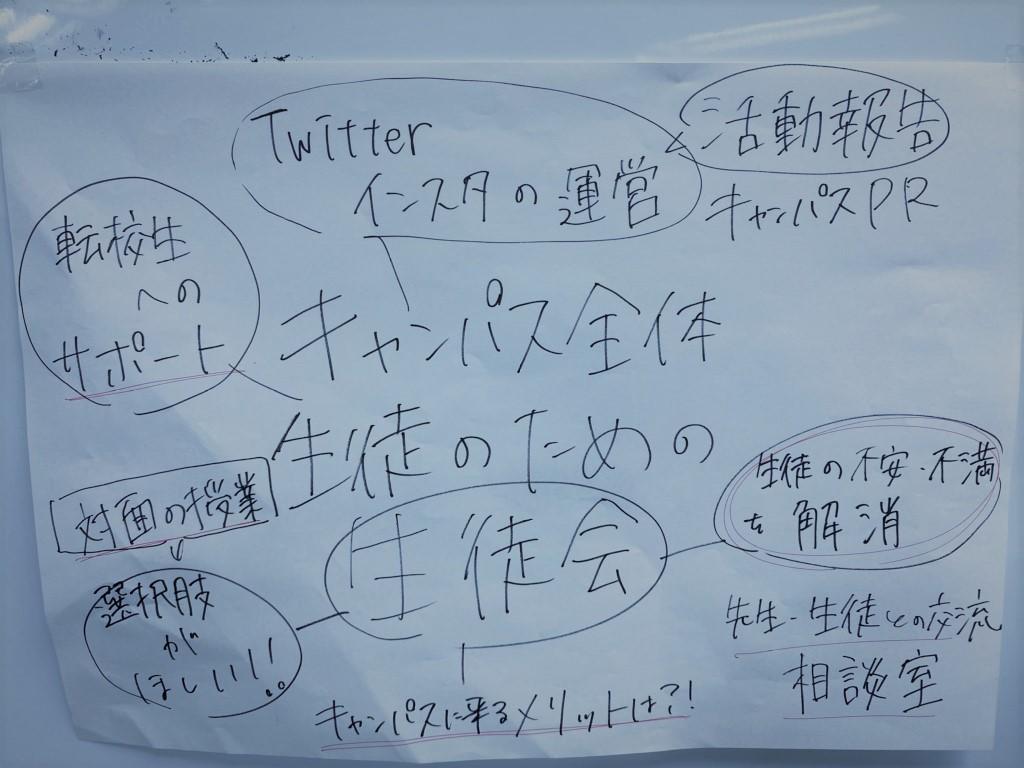 Twitter
インスタの運営
活動報告
キャンパスPR
転校生
への
サポート
キャンパス全体
生徒のための
生徒会
対面の授業
選択肢
が
ほしい!!
生徒の不安・不満
を解消
先生・生徒との交流
相談室
キャンパスに来るメリットは?!